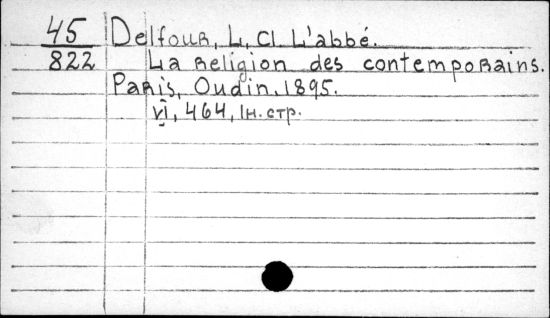 45 Delfour, L. Cl. L'abbé.
822 La Religion des contemporains.
Paris, Oudin, 1895.
VI, 464, Iн. стр.